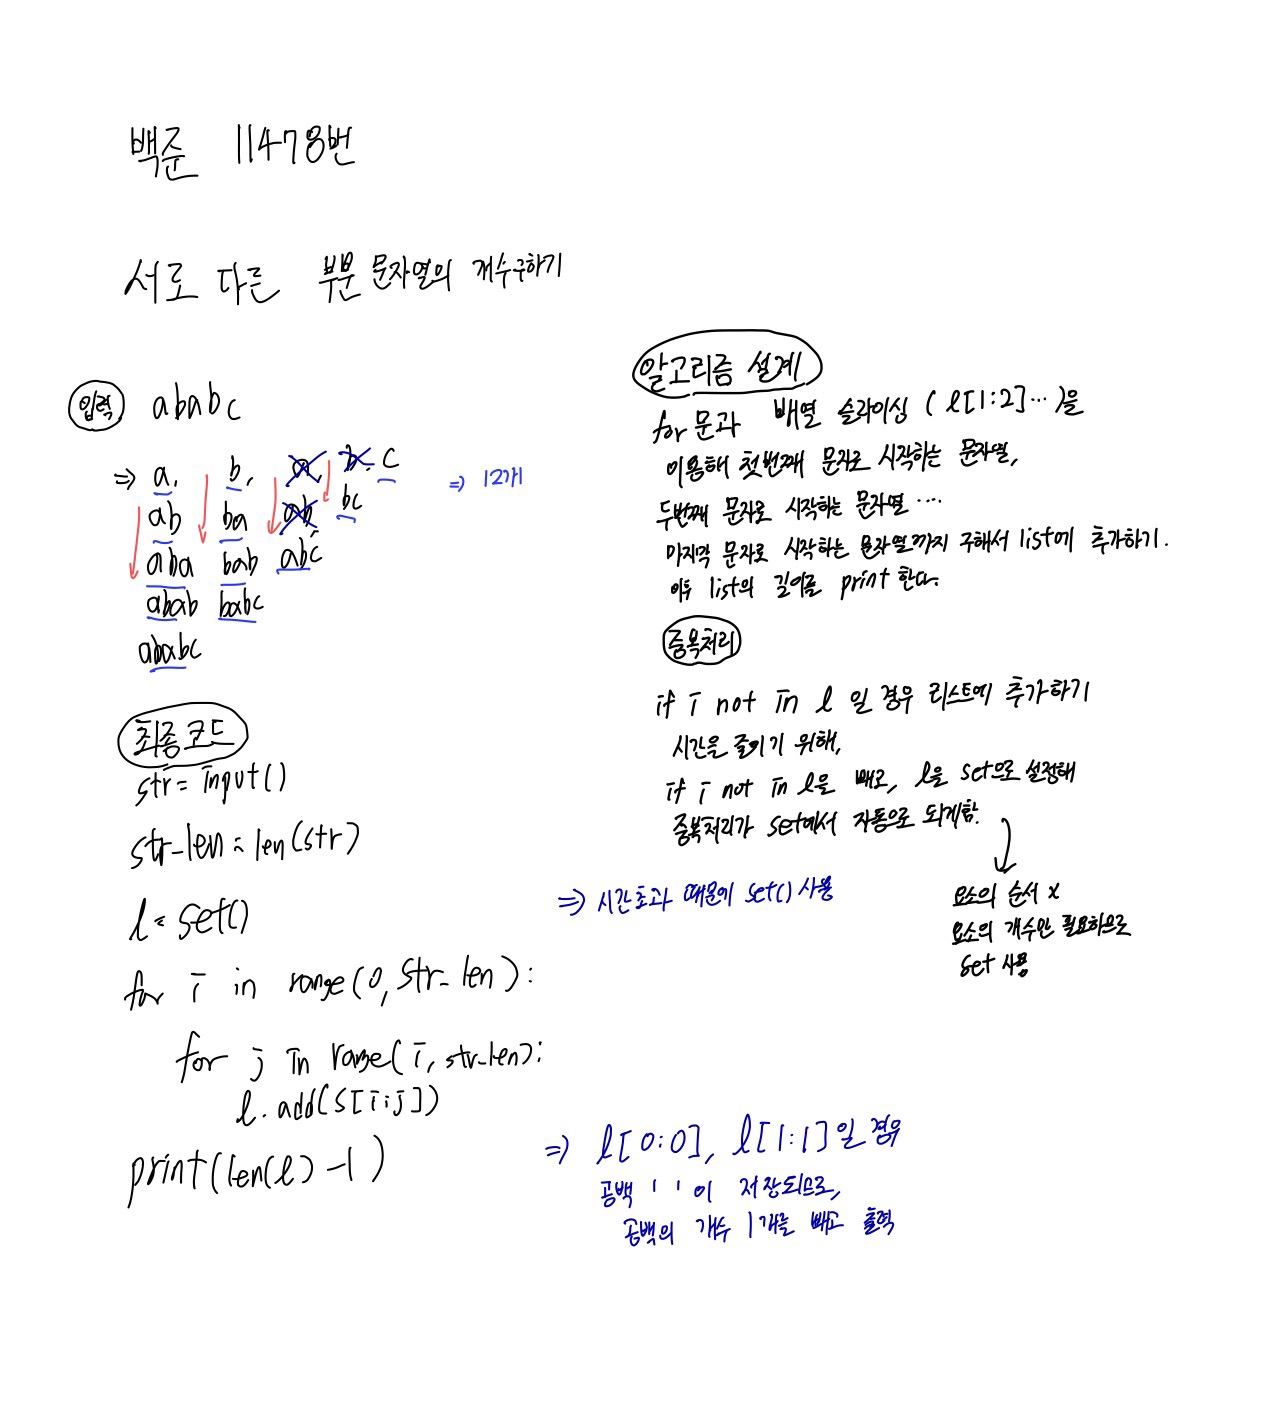 백준 11478번
서로 다른 부분 문자열의 개수구하기
입력 ababc
⇒ a, b, a, b, c ⇒ 12개
ab ba ab bc
aba bab abc
abab babc
ababc
최종코드
str = input()
str_len = len(str)
l = set()
for i in range(0, str_len):
for j in range(i, str_len):
l.add(s[i:j])
print(len(l)-1)
알고리즘 설계
for 문과 배열 슬라이싱 (l[1:2]...)을
이용해 첫번째 문자로 시작하는 문자열,
두번째 문자로 시작하는 문자열 ....
마지막 문자로 시작하는 문자열까지 구해서 list에 추가하기.
이후 list의 길이를 print 한다.
중복처리
if i not in l 일 경우 리스트에 추가하기
시간을 줄이기 위해,
if i not in l을 빼고, l을 set으로 설정해
중복처리가 set에서 자동으로 되게함.
요소의 순서 x
요소의 개수만 필요하므로
set 사용
⇒ 시간초과 때문에 set() 사용
⇒ l[0:0], l[1:1]일 경우
공백 ' '이 저장되므로,
공백의 개수 1개를 빼고 출력